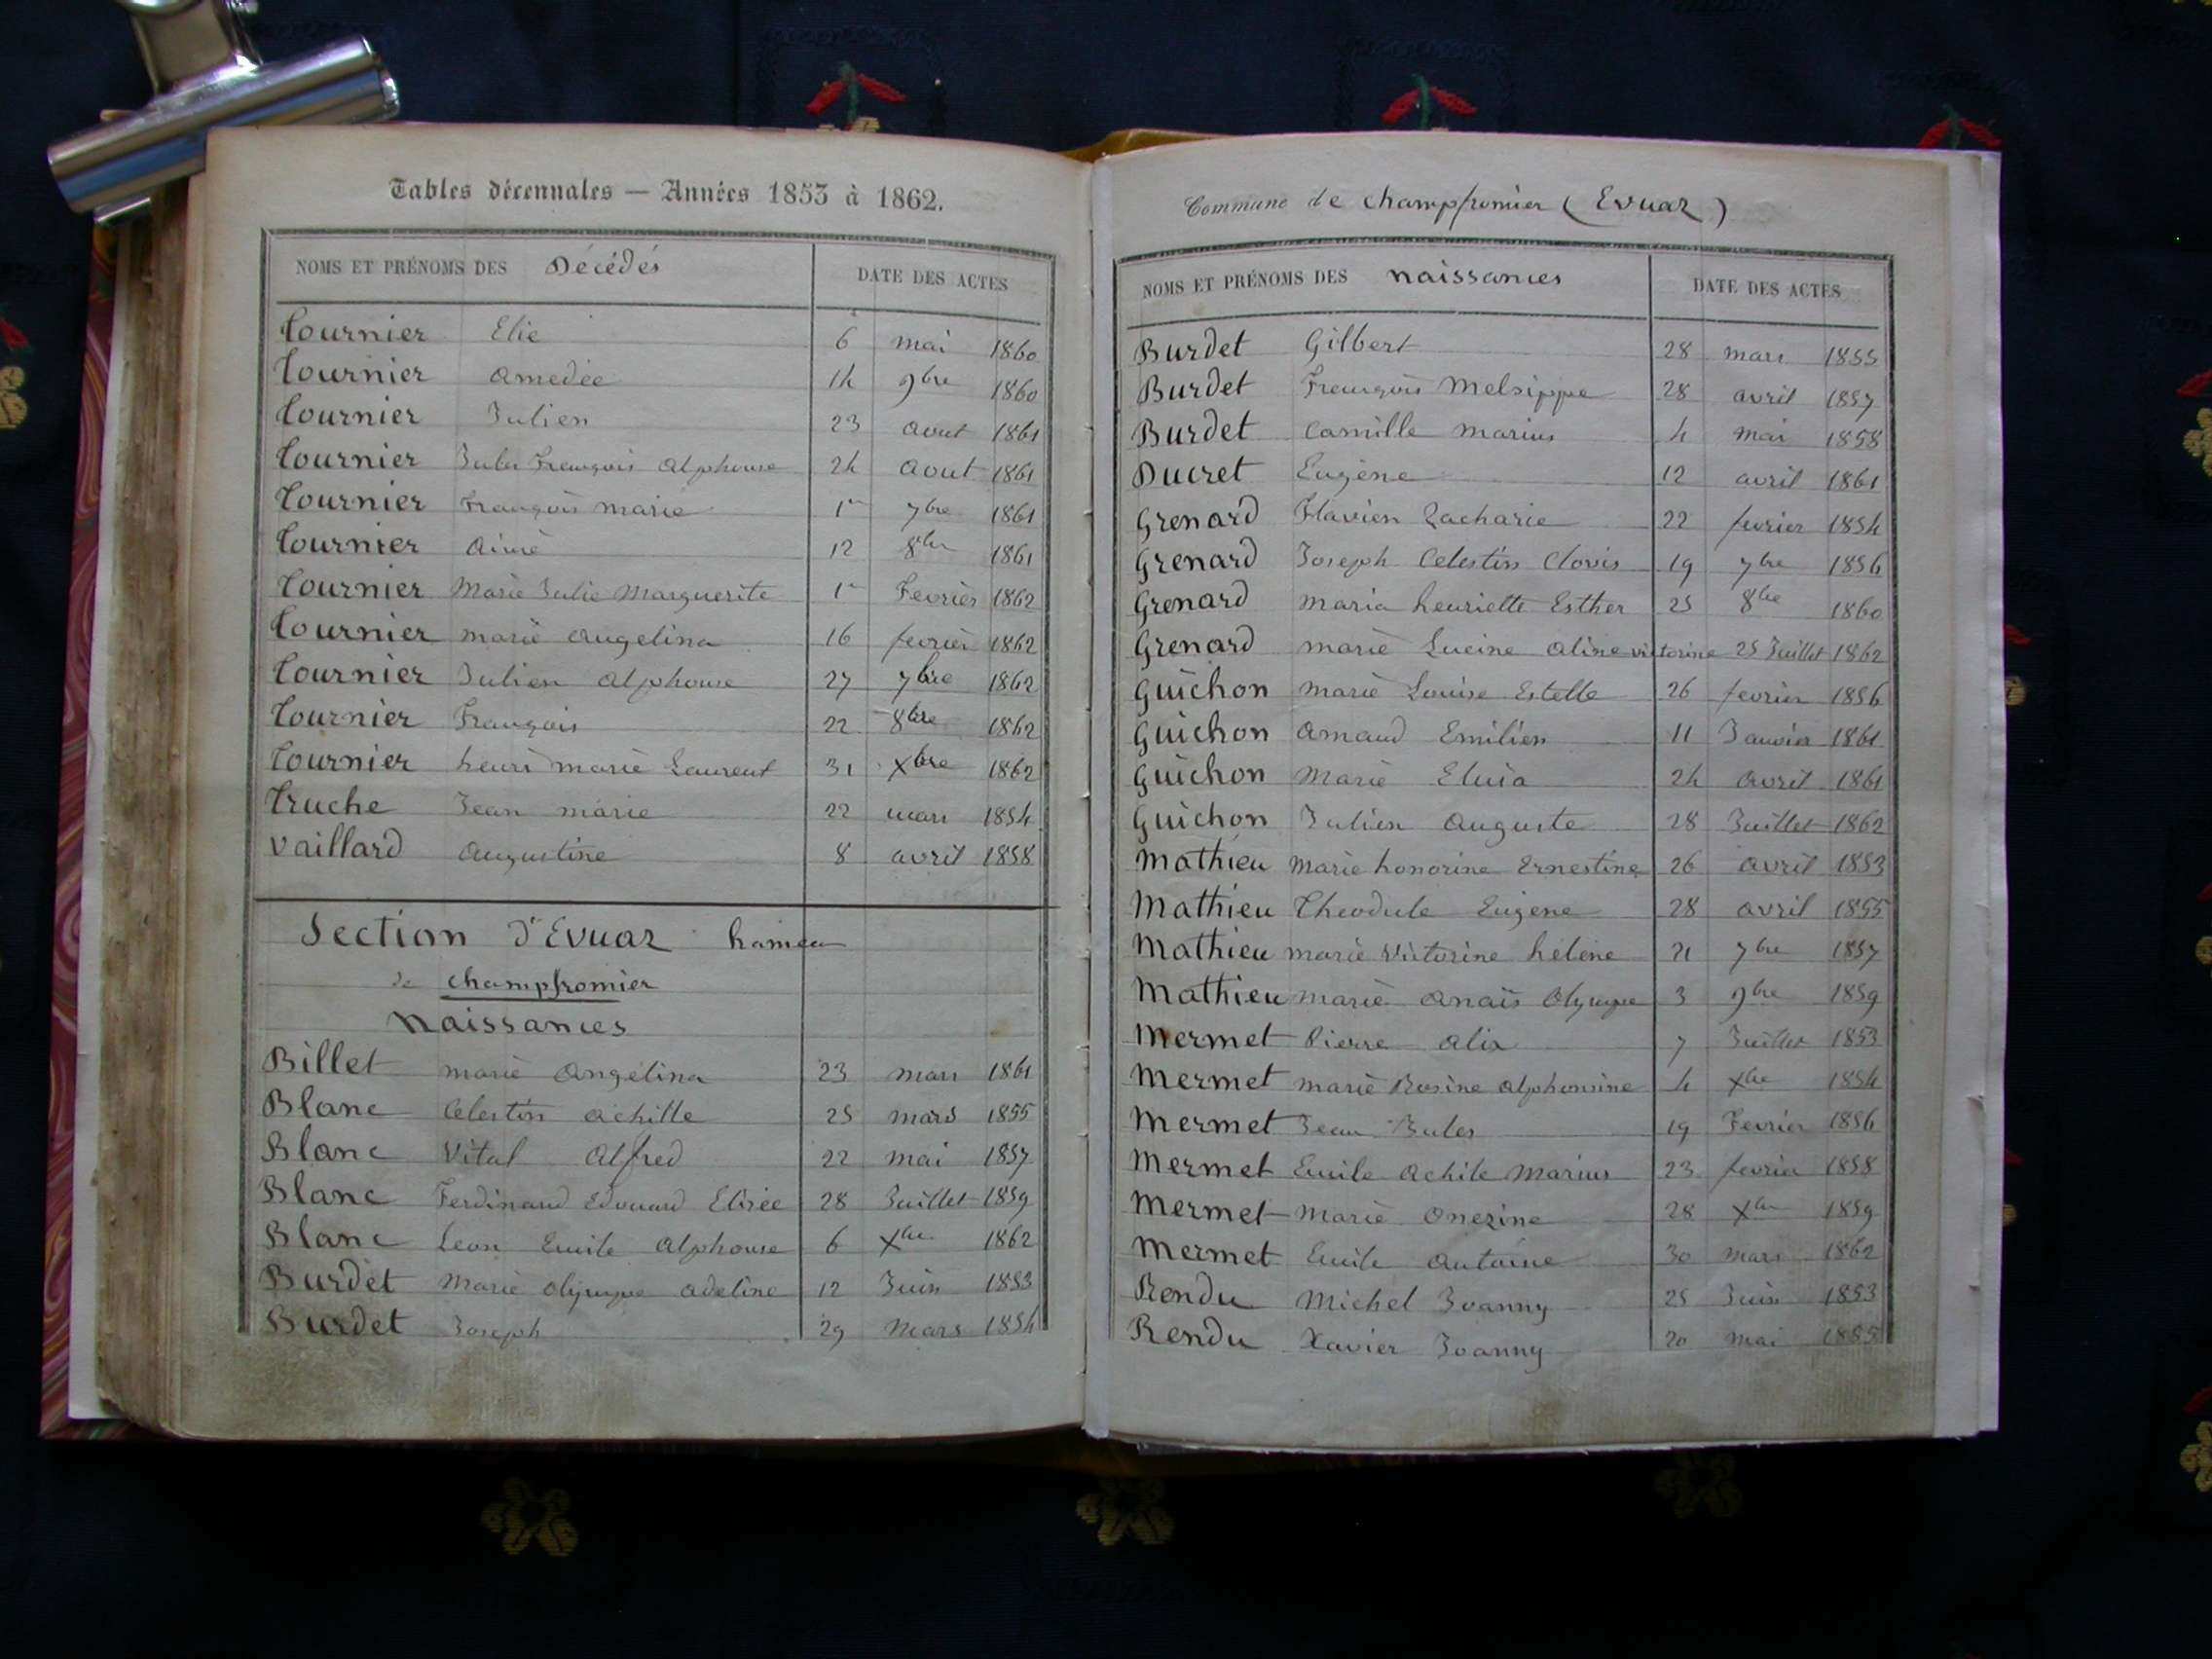 Tables décennales — Années 1853 à 1862.
NOMS ET PRÉNOMS DES Décédés DATE DES ACTES
Tournier Elie 6 mai 1860
Tournier amedée 14 9bre 1860
Tournier Julien 23 aout 1861
Tournier Jules François alphonse 24 aout 1861
Tournier François marie 1er 7bre 1861
Tournier aimé 12 8bre 1861
Tournier Marie Julie Marguerite 1er Fevrier 1862
Tournier marie angelina 16 fevrier 1862
Tournier Julien alphonse 27 7bre 1862
Tournier François 22 8bre 1862
Tournier henri marie Laurent 31 Xbre 1862
Truche Jean marie 22 mars 1854
Vaillard augustine 8 avril 1858
Section d'Evuaz hameau
de champfromier
Naissances
Billet marie angelina 23 mars 1861
Blanc Celestin achille 25 mars 1855
Blanc Vital alfred 22 mai 1857
Blanc Ferdinand Edouard Elisée 28 Juillet 1859
Blanc Leon Emile alphonse 6 Xbre 1862
Burdet Marie olympe adeline 12 Juin 1853
Burdet Joseph 29 mars 1854
Commune de champfromier (Evuaz)
NOMS ET PRÉNOMS DES naissances DATE DES ACTES
Burdet Gilbert 28 mars 1855
Burdet François Melsippe 28 avril 1857
Burdet Camille marius 4 mai 1858
Ducret Eugène 12 avril 1861
Grenard Flavien Zacharie 22 fevrier 1854
Grenard Joseph Celestin Clovis 19 7bre 1856
Grenard maria henriette Esther 25 8bre 1860
Grenard marie Lucine aline victorine 25 Juillet 1862
Guichon marie Louise Estelle 26 fevrier 1856
Guichon amand Emilien 11 Janvier 1861
Guichon Marie Eluia 24 avril 1861
Guichon Julien auguste 28 Juillet 1862
Mathieu Marie honorine Ernestine 26 avril 1853
Mathieu Theodule Eugene 28 avril 1855
Mathieu marie Victorine helène 21 7bre 1857
Mathieu marie anaïs Olympe 3 9bre 1859
Mermet Pierre alix 7 Juillet 1853
Mermet marie Rosine alphonsine 4 Xbre 1854
Mermet Jean Jules 19 Fevrier 1856
Mermet Emile achile Marius 23 fevrier 1858
Mermet Marie onezine 28 Xbre 1859
Mermet Emile antoine 30 mars 1862
Rendu Michel Joanny 25 Juin 1853
Rendu Xavier Joanny 20 mai 1855